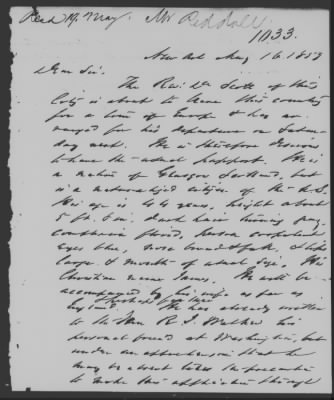 Read 19. May. Mr Reddall
1033.
New Orl. May 16. 1853
Dear Sir.
The Rev. Dr Scott of this
City is about to leave this country
for a tour of Europe & has ar-
ranged for his departure on Satur-
day next. He is therefore desirous
to have the usual passport. He is
a native of Glasgow Scotland, but
is a naturalized citizen of the U.S.
His age is 44 years, height about
5 ft. 6 in. dark hair turning gray,
countenance florid, person corpulent
eyes blue, nose broad & full, & lips
large & mouth of usual size. His
Christian name James. He will be
accompanied by his wife as far as
England. He has already written
to the Hon R. J. Walker his
personal friend at Washington, but
under an apprehension that he
may be absent takes the precaution
to make this application through